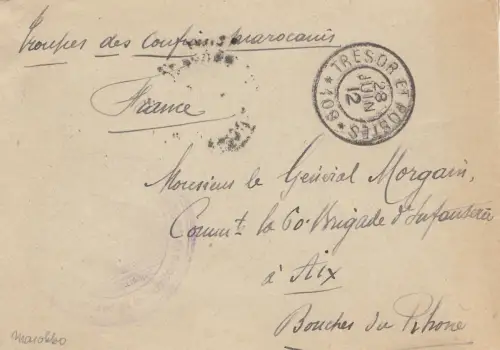 Troupes des Confins marocains
France
TRESOR ET POSTES
28
JUIN
12
* 80 *
Monsieur le Général Morgain,
Commt la 60e Brigade d'Infanterie
à Aix
Bouches du Rhône
Marokko